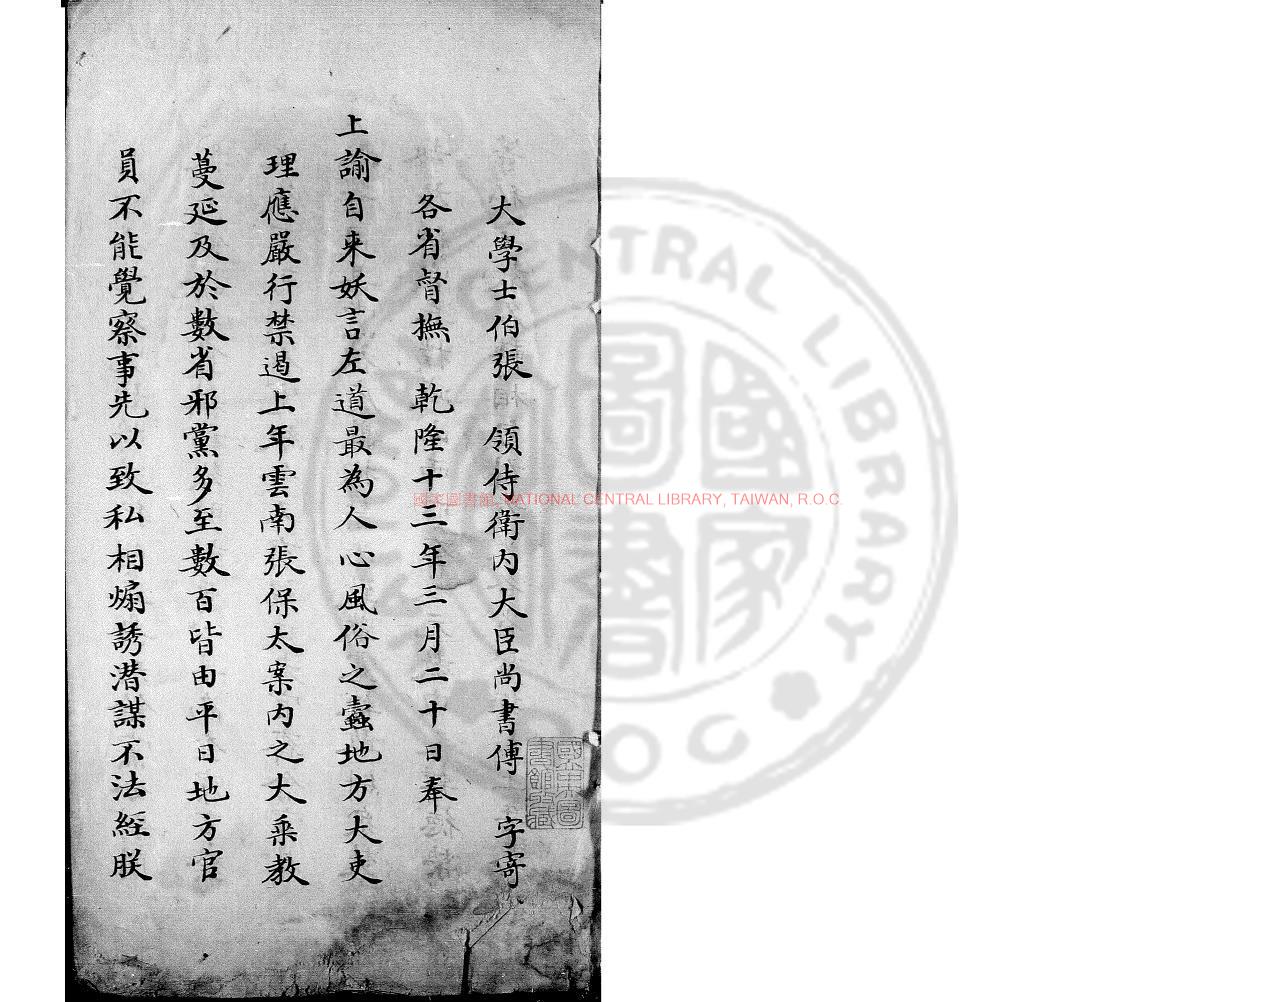 大學士伯張　領侍衛內大臣尚書傅　字寄
各省督撫　乾隆十三年三月二十日奉
上諭自来妖言左道最為人心風俗之蠹地方大吏
理應嚴行禁遏上年雲南張保太案内之大乗教
蔓延及於數省邪黨多至數百皆由平日地方官
員不能覺察事先以致私相煽誘潜謀不法經朕
國家圖書館藏
國家圖書館, NATIONAL CENTRAL LIBRARY, TAIWAN, R.O.C.
NATIONAL CENTRAL LIBRARY
ROC
國家圖書